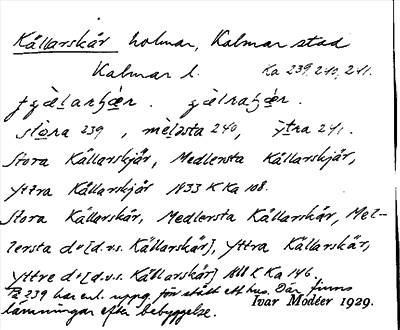 Källarskär holmar, Kalmar stad
Kalmar l. Ka 239, 240, 241.
stòra 239, mèlǝsta 240, ỳtra 241.
Stora Källarskjär, Medlersta Källarskjär,
Yttra Källarskjär 1833 K Ka 108.
Stora Källarskär, Medlersta Källarskär, Mel-
lersta do [d.v.s. Källarskär], Yttra Källarskär,
Yttre do [d.v.s. Källarskär] K Ka 146.
På 239 har enl. uppg. förr stått ett hus. Där finns
lämningar efter bebyggelse. Ivar Modéer 1929.